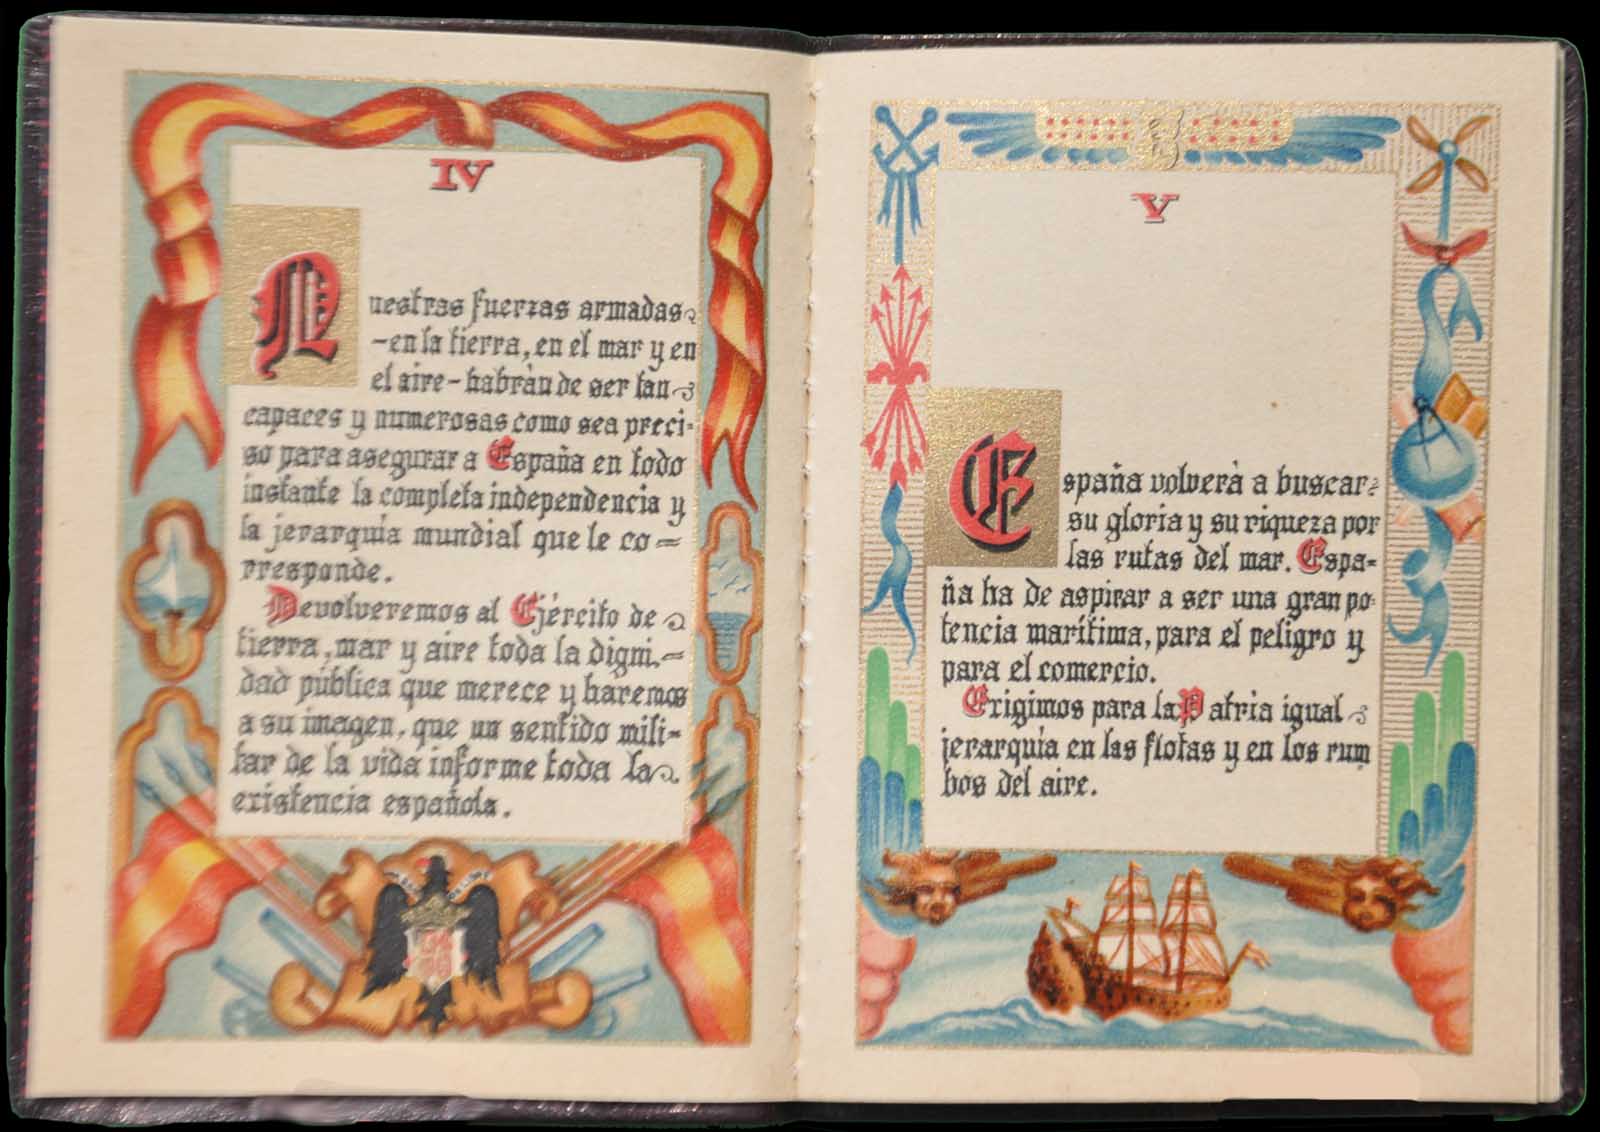 IV
Nuestras fuerzas armadas
-en la tierra, en el mar y en
el aire- habràn de ser tan
capaces y numerosas como sea preci-
so para asegurar a España en todo
instante la completa independencia y
la jerarquía mundial que le co=
rresponde.
Devolveremos al Ejército de
tierra, mar y aire toda la digni.=
dad pública que merece y haremos
a su imagen, que un sentido mili-
tar de la vida informe toda la
existencia española.
V
España volverà a buscar
su gloria y su riqueza por
las rutas del mar. Espa=
ña ha de aspirar a ser una gran po-
tencia marítima, para el peligro y
para el comercio.
Exigimos para la Patria igual
jerarquía en las flotas y en los rum
bos del aire.